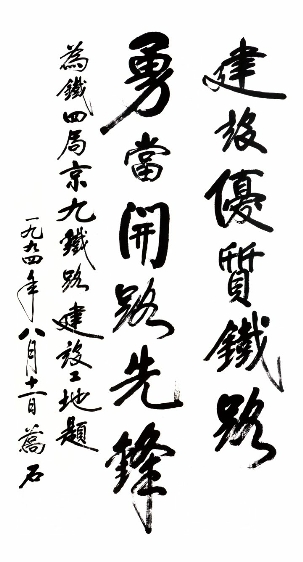 建设優質鐵路
勇當開路先鋒
為鐵四局京九鐵路建設工地題
一九九四年八月十一日 萬石